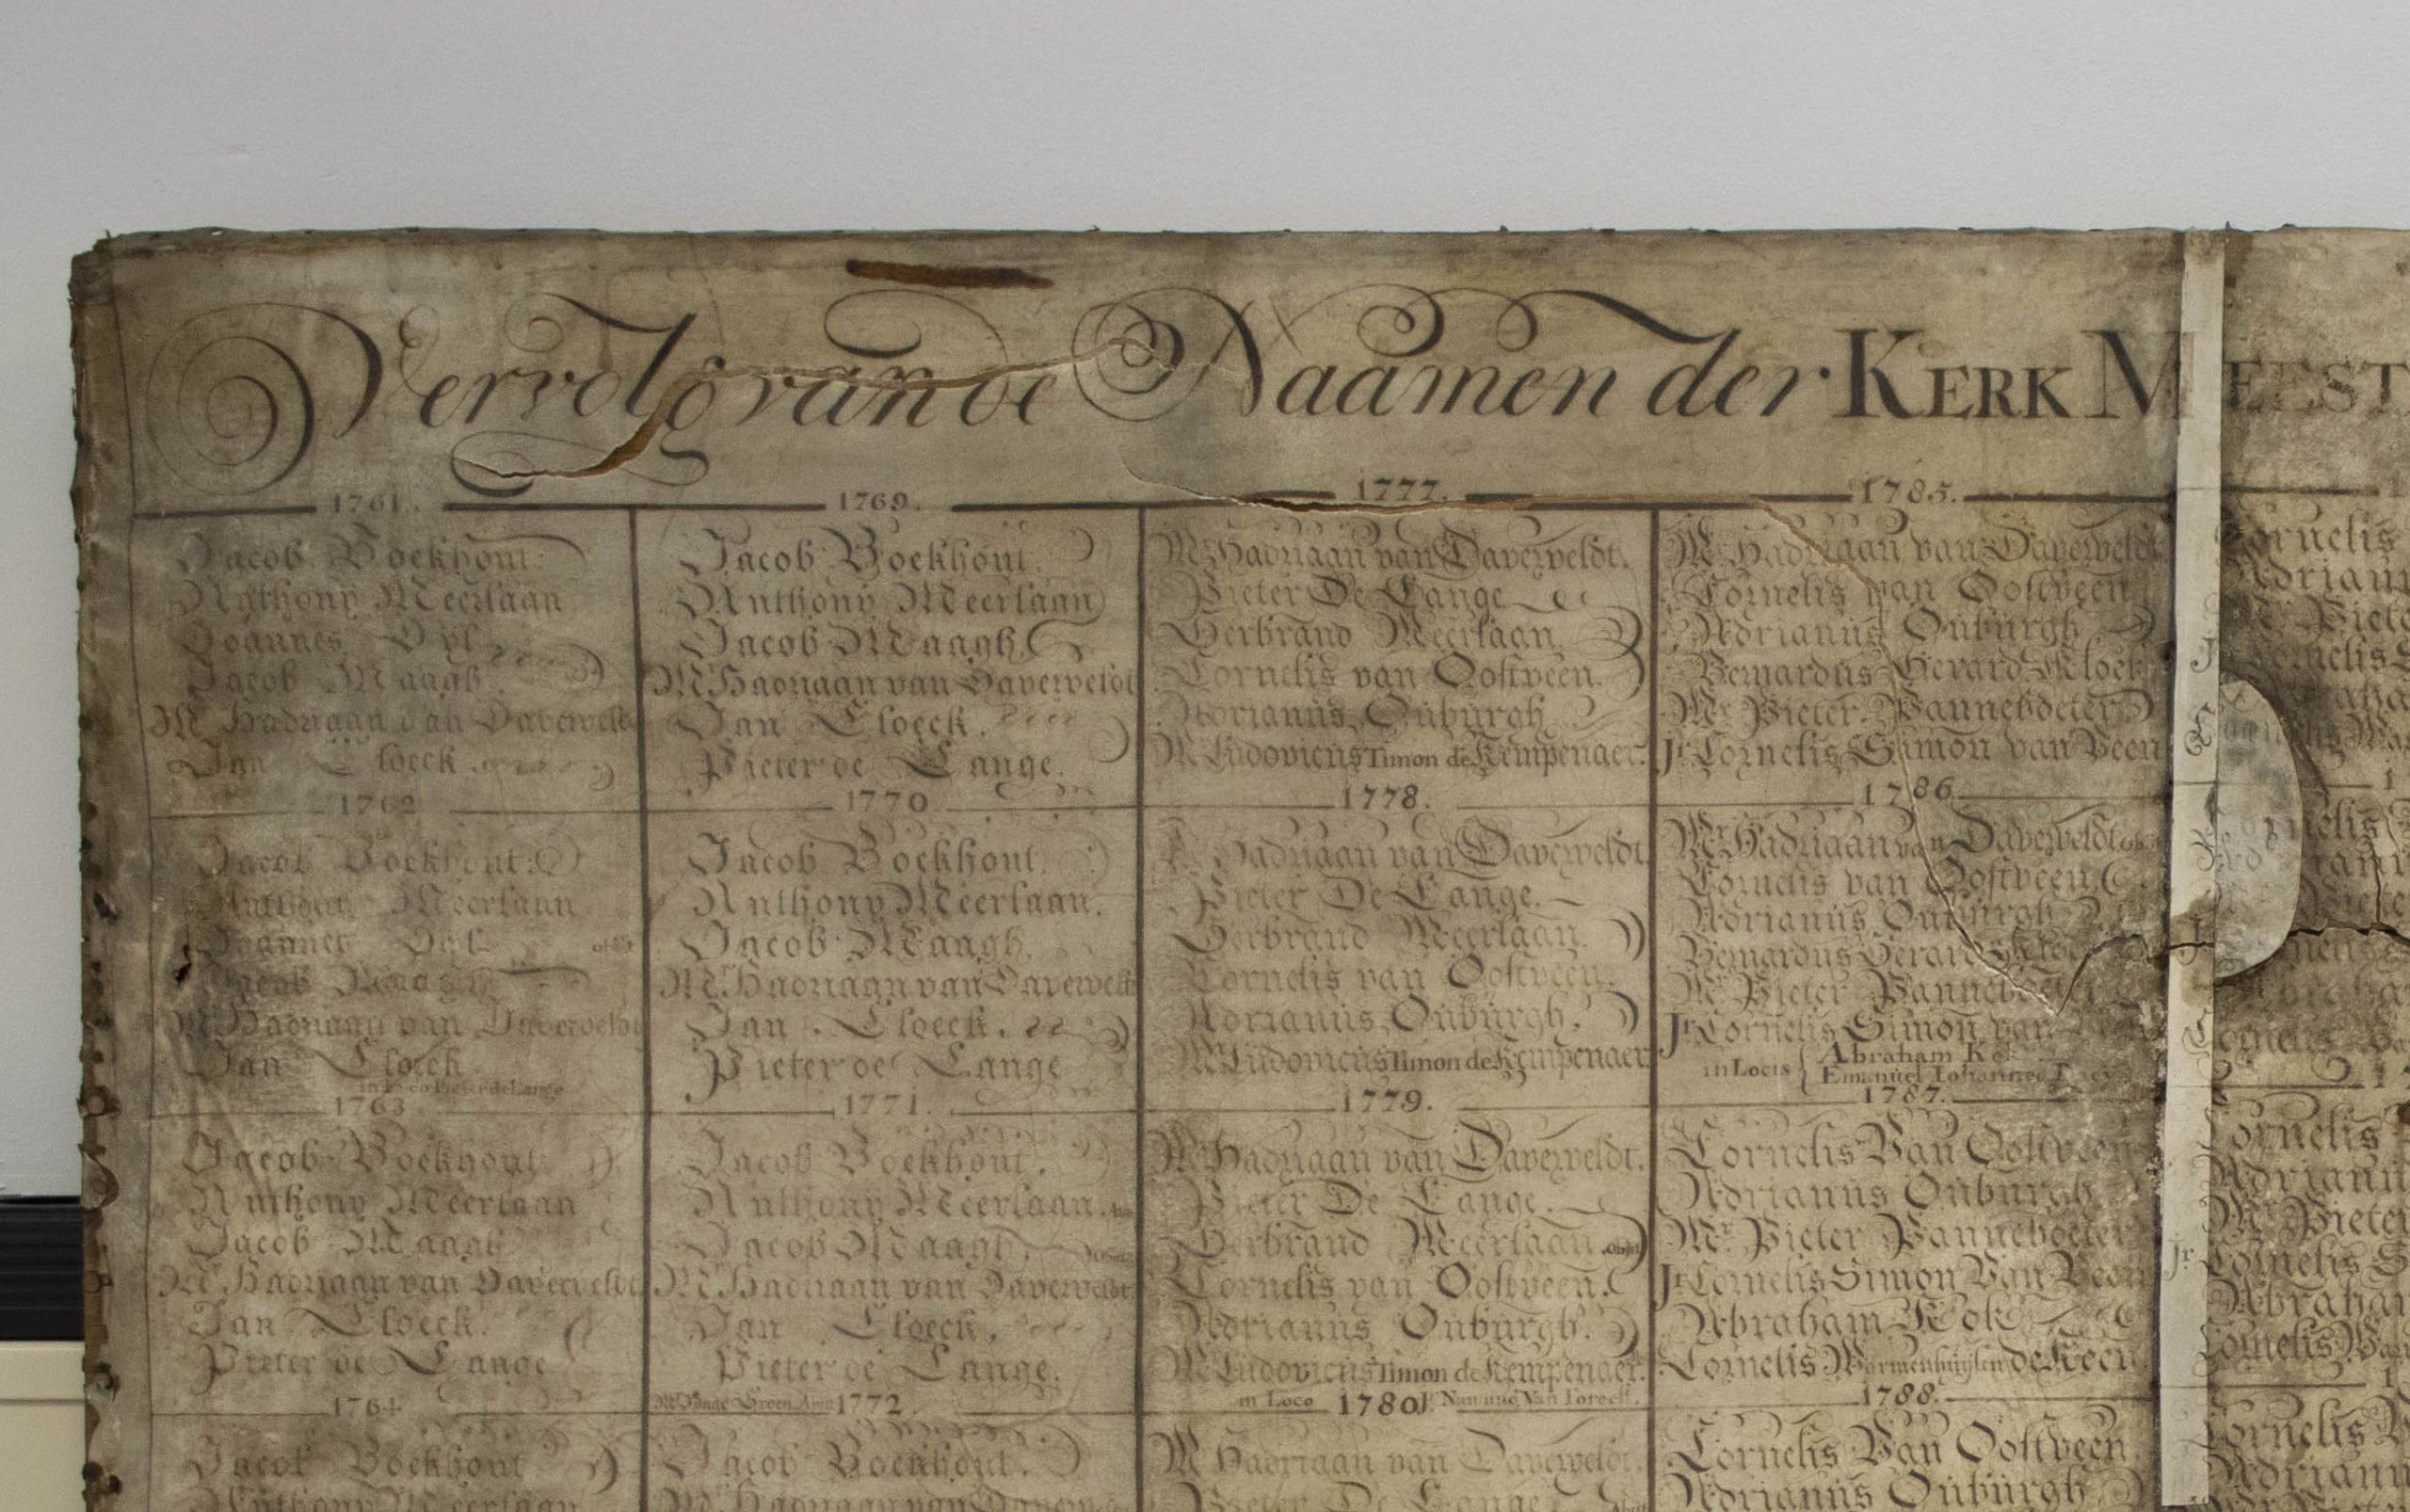 Vervolg van de Naamen der KERK MEEST
1761.
Jacob Boekhout
Anthony Meerlaan
Joannes Dyl
Jacob Maagh.
Mr. Hadriaan van Daverveldt
Jan Cloeck
1762
Jacob Boekhout
Anthony Meerlaan
Joannes
Jacob Maagh
Mr. Hadriaan van Daverveldt
Jan Cloeck
in Loco Pieter de Lange
1763
Jacob Boekhout
Anthony Meerlaan
Jacob Maagh
Mr. Hadriaan van Daverveldt
Jan Cloeck.
Pieter de Lange
1764.
Jacob Boekhout
Anthony Meerlaan
1769.
Jacob Boekhout.
Anthony Meerlaan
Jacob Maagh.
Mr. Hadriaan van Daverveldt
Jan Cloeck.
Pieter de Lange.
1770
Jacob Boekhout
Anthony Meerlaan.
Jacob Maagh.
Mr. Hadriaan van Daverveldt
Jan Cloeck.
Pieter de Lange
1771.
Jacob Boekhout.
Anthony Meerlaan.
Jacob Maagh.
Mr. Hadriaan van Daverveldt
Jan Cloeck.
Pieter de Lange.
1772.
Jacob Boekhout.
Mr. Hadriaan van
1777.
Mr. Hadriaan van Daverveldt.
Pieter De Lange
Gerbrand Meerlaan
Cornelis van Oostveen.
Adrianus Ouburgh
Mr. Ludovicus Timon de Kempenaer.
1778.
Mr. Hadriaan van Daverveldt
Pieter De Lange.
Gerbrand Meerlaan.
Cornelis van Oostveen.
Adrianus Ouburgh.
Mr. Ludovicus Timon de Kempenaer
1779.
Mr. Hadriaan van Daverveldt.
Pieter De Lange.
Gerbrand Meerlaan obijt
Cornelis van Oostveen.
Adrianus Ouburgh.
Mr. Ludovicus Timon de Kempenaer.
in Loco Jr. Nanning Van Foreest.
1780
Mr. Hadriaan van Daverveldt.
Pieter De Lange
1785.
Mr. Hadriaan van Daverveldt
Cornelis van Oostveen
Adrianus Ouburgh
Bernardus Gerard Kloek
Mr. Pieter Panneboeter
Jr. Cornelis Simon van Veen
1786
Mr. Hadriaan van Daverveldt
Cornelis van Oostveen
Adrianus Ouburgh
Bernardus Gerard
Mr. Pieter Panneboeter
Jr. Cornelis Simon van
in Locis { Abraham Kok
Emanuel Johannes
1787.
Cornelis Van Oostveen
Adrianus Ouburgh
Mr. Pieter Panneboeter
Jr. Cornelis Simon Van Veen
Abraham Kok
Cornelis Warmenhuysen de Veen
1788.
Cornelis Van Oostveen
Adrianus Ouburgh
Cornelis
Adrianu
Mr. Piete
Cornelis S
Cornelis
Pieter
Cornelis
Adrianu
Mr. Pieter
Jr. Cornelis S
Abraham
Cornelis Wa
Cornelis V
Adriann